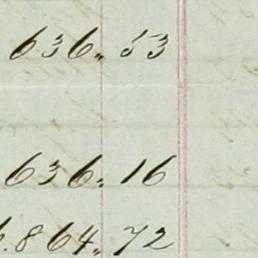 636.. 53
636.. 16
.864.. 72